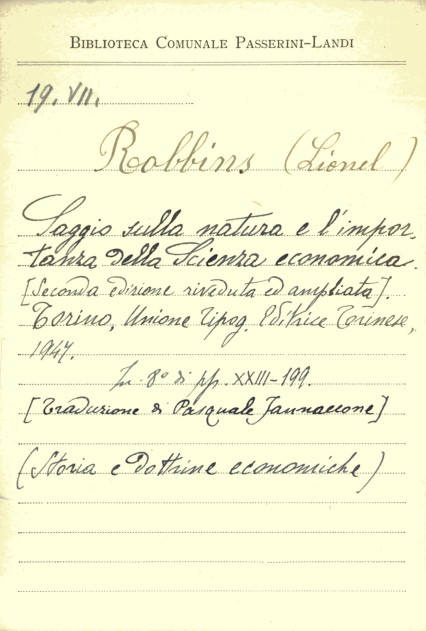 BIBLIOTECA COMUNALE PASSERINI-LANDI
19. VII.
Robbins (Lionel)
Saggio sulla natura e l'impor-
tanza della Scienza economica.
[Seconda edizione riveduta ed ampliata].
Torino, Unione Tipog. Editrice Torinese,
1947.
In 8° di pp. XXIII-199.
[Traduzione di Pasquale Jannaccone]
(Storia e dottrine economiche)